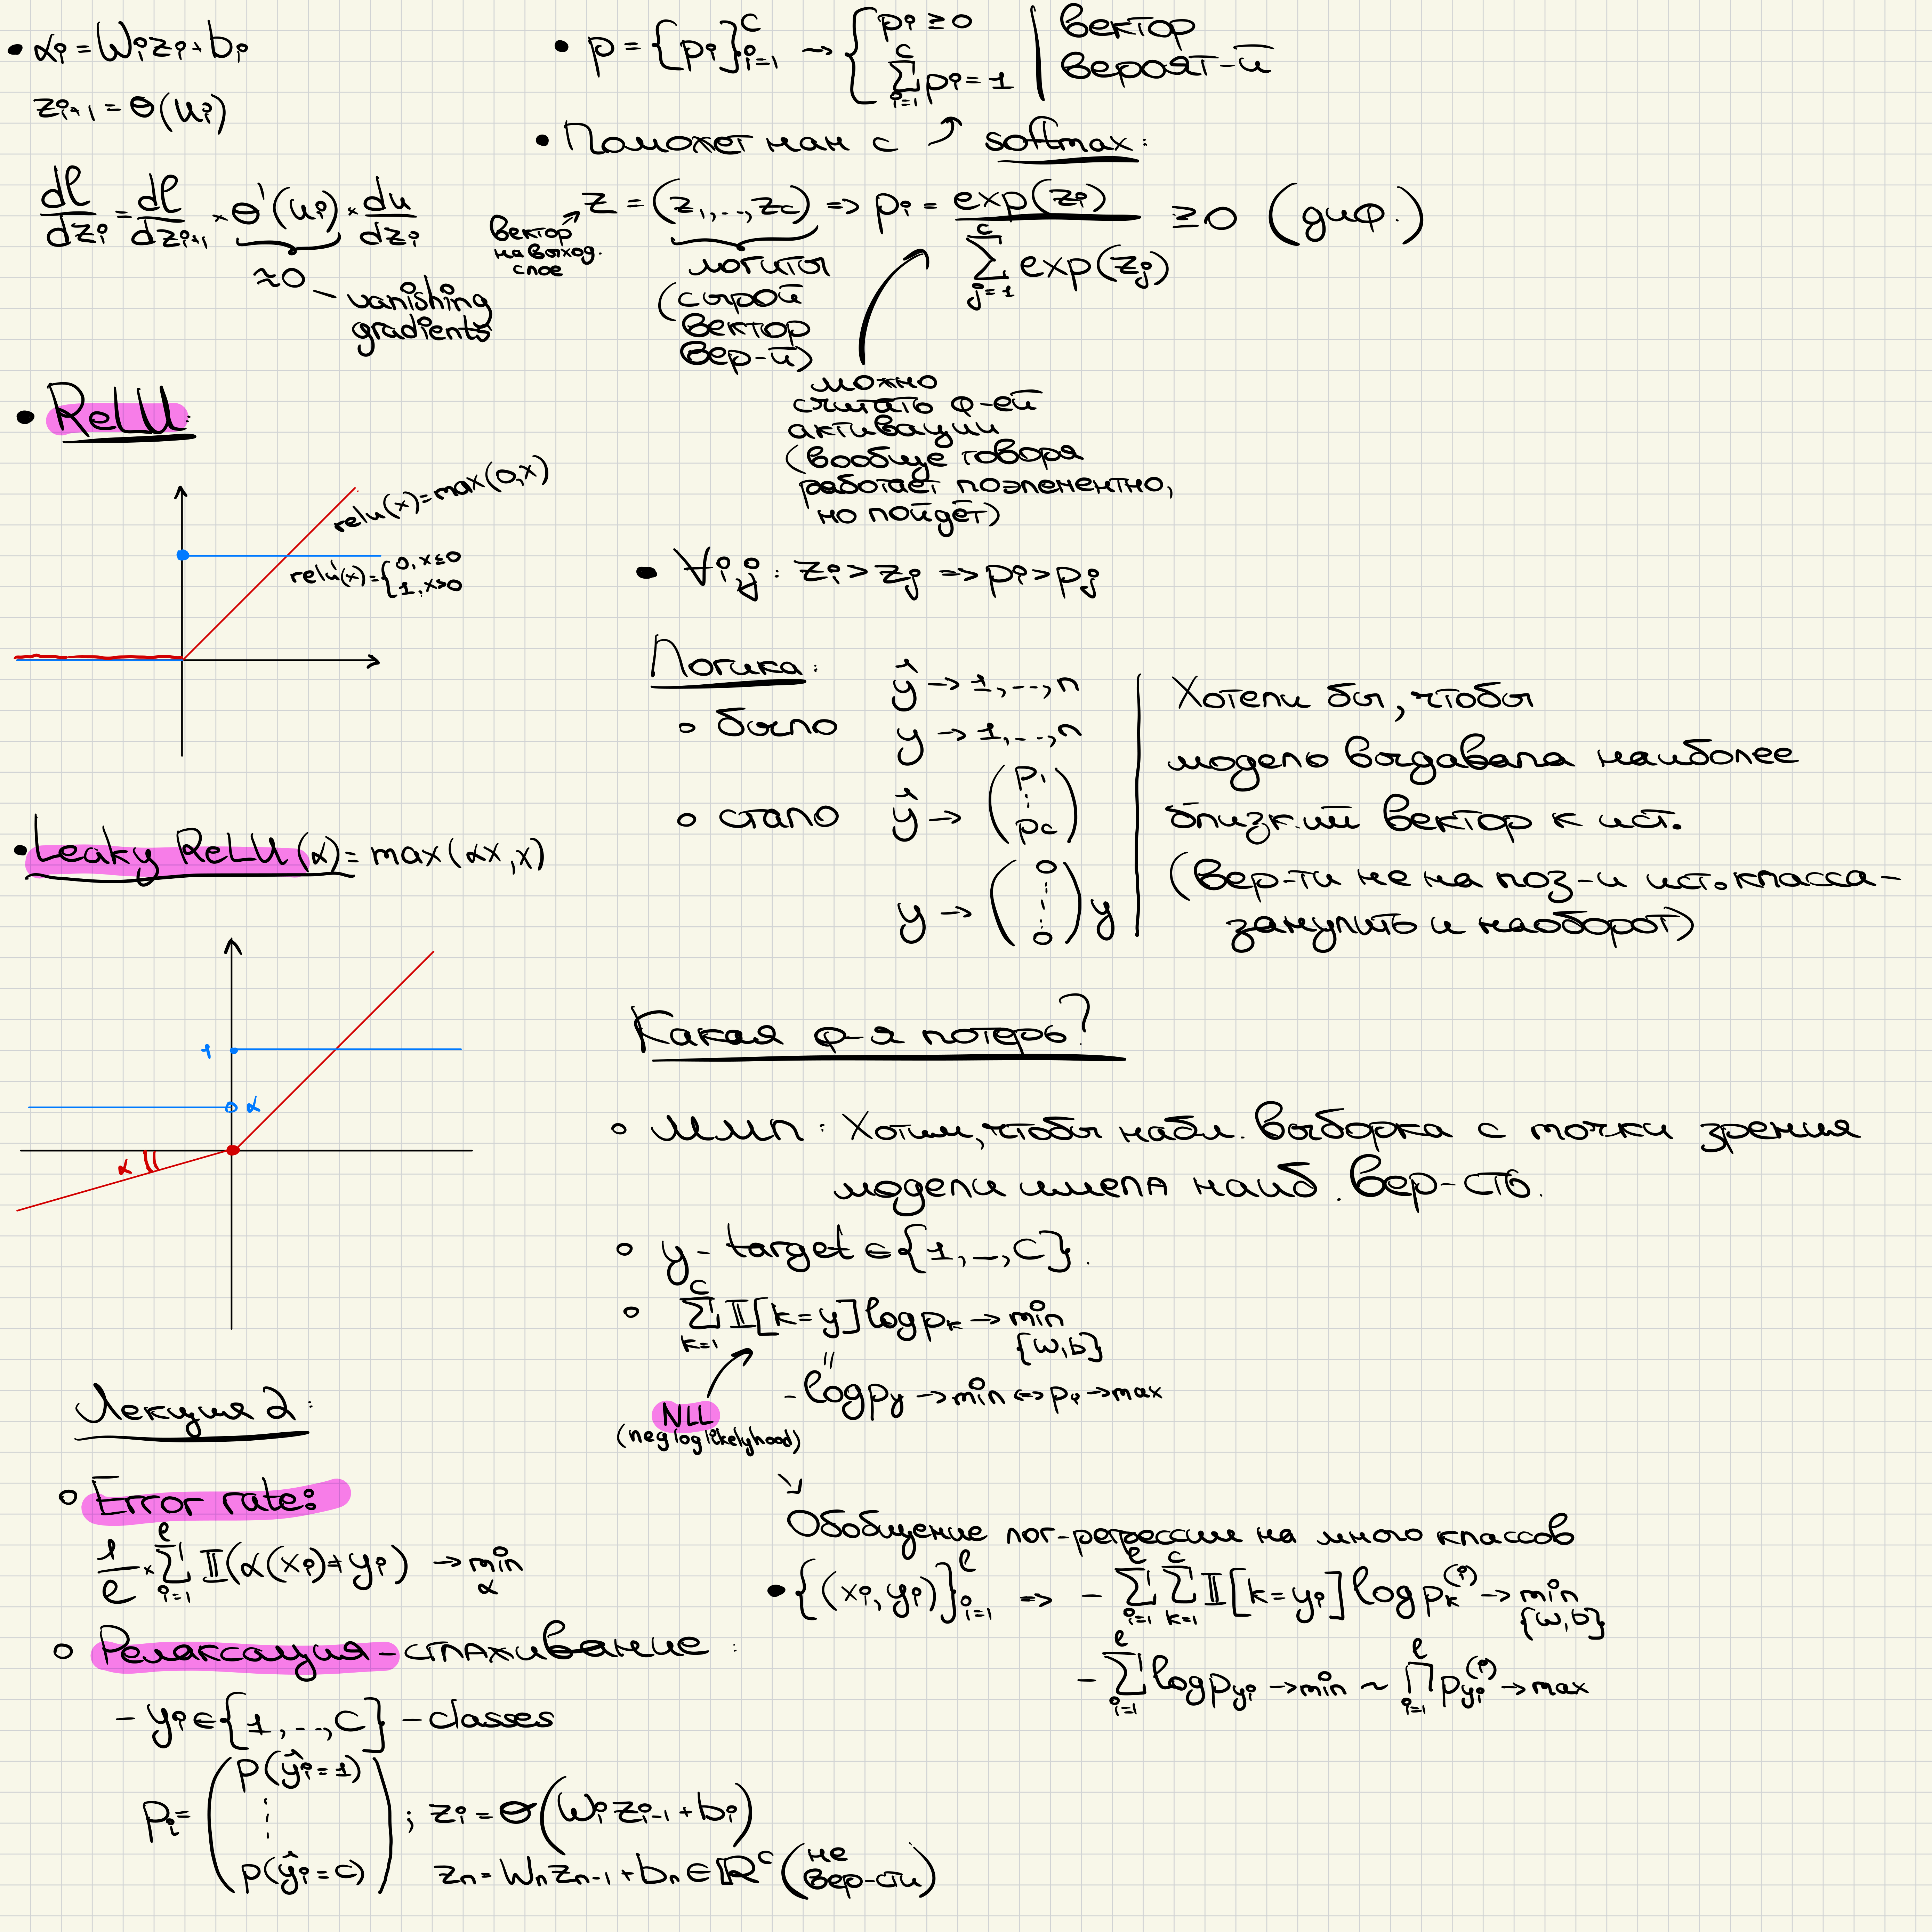 • αi = Wi zi + bi
zi+1 = σ(ui)
dℓ/dzi = dℓ/dzi+1 × σ'(ui) × du/dzi
≈0 – vanishing
gradients
• ReLU:
relu(x)=max(0,x)
relu'(x)={0, x≤0
1, x>0
• Leaky ReLU(α) = max(αx, x)
1
α
α
Лекция 2:
∘ Error rate:
1/ℓ × ∑_{i=1}^{ℓ} 𝕀(α(xi) ≠ yi) → min_α
∘ Релаксация – сглаживание:
– yi ∈ {1,..,C} – classes
pi = (p(ŷi = 1) ⋮ p(ŷi = c)) ; zi = σ(Wi zi-1 + bi)
zn = Wn zn-1 + bn ∈ ℝ^C (не
вер-сти)
• p = {pi}_{i=1}^{C} → { pi ≥ 0 | вектор
∑_{i=1}^{C} pi = 1 | вероят-й
• Поможет нам с ↗ softmax:
z = (z1,..,zc) => pi = exp(zi) / ∑_{j=1}^{C} exp(zj) ≥ 0 (диф.)
вектор
на выход.
слое
логиты
(сырой
вектор
вер-й)
можно
считать ф-ей
активации
(вообще говоря
работает поэлементно,
но пойдёт)
• ∀i,j: zi > zj => pi > pj
Логика:
ŷ → 1,...,n
∘ было
y → 1,...,n
∘ стало ŷ → (p1 ⋮ pc)
y → (0 ⋮ 0) y
Хотели бы, чтобы
модель выдавала наиболее
близкий вектор к ист.
(вер-ти не на поз-и ист. класса –
занулить и наоборот)
Какая ф-я потерь?
∘ ММП: Хотим, чтобы набл. выборка с точки зрения
модели имела наиб. вер-сть.
∘ y – target ∈ {1,..,C}.
∘ ∑_{k=1}^{C} 𝕀[k=y] log pk → min_{w,b}
=
– log py → min <=> pi → max
NLL
(neg log likelyhood)
↘
Обобщение лог-регрессии на много классов
• {(xi, yi)}_{i=1}^{ℓ} => – ∑_{i=1}^{ℓ} ∑_{k=1}^{C} 𝕀[k=yi] log pk^(i) → min_{w,b}
– ∑_{i=1}^{ℓ} log pyi → min ~ ∏_{i=1}^{ℓ} pyi^(i) → max